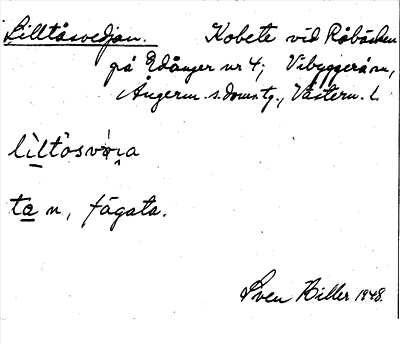 Lilltåsvedjan. Kobete vid Råbäcken
på Edånger nr 4; Vibyggerå sn,
Ångerm. s. doms. tg., Västern. l.
lìltåsvα̣ιa
ta n, fägata.
Sven Hiller 1948.